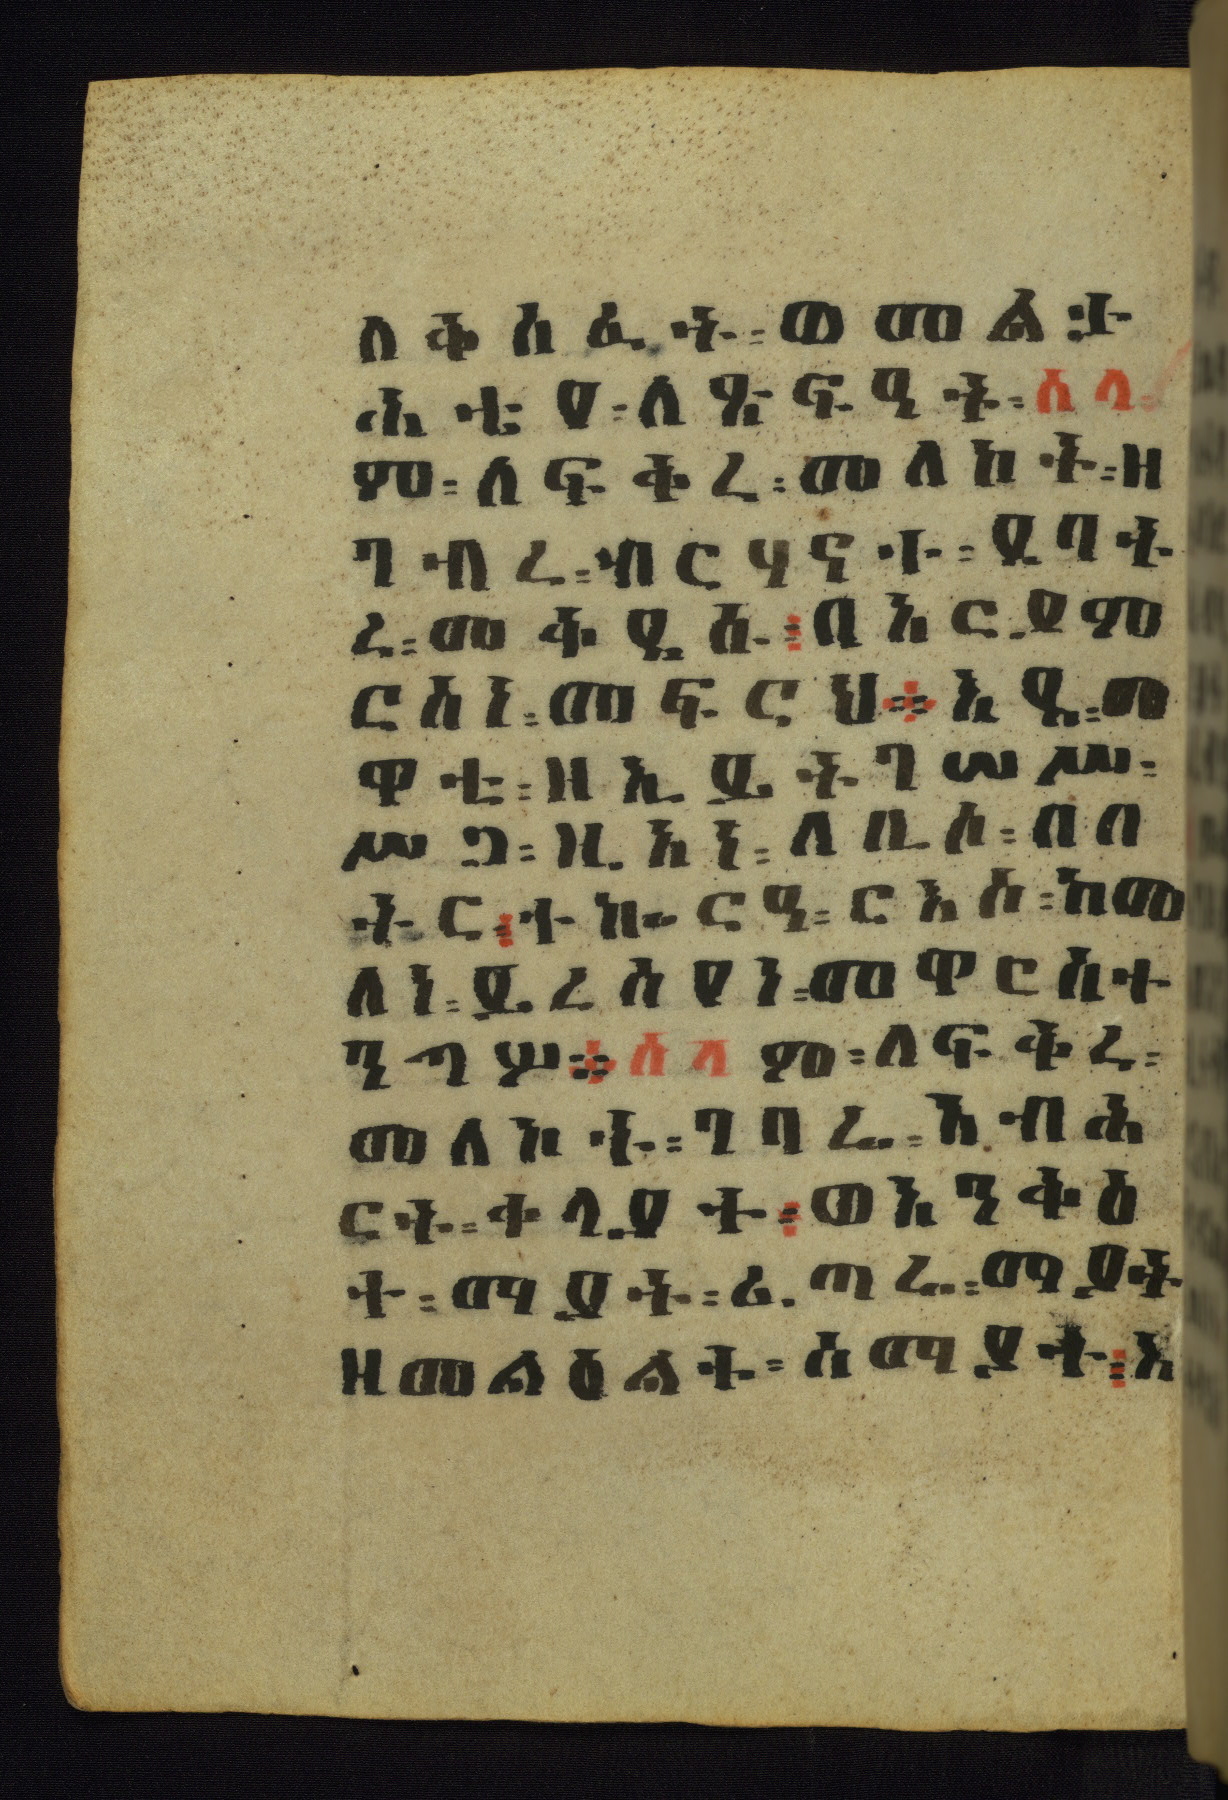 ለቅአፊቱ፡ወመልዕ፡ት
ሕቲሃ፡ለጽፍዓቱ፡ሰላ፡
ም፡ለፍቅረ፡መለኮት፡ዘ
ገብረ፡ብርሃናተ፡ዐበይተ
ረ፡መቅድሐ፡በአርያም
ርአይ፡መፍርህ፨እዴ፡መ
ዋቲ፡ዘኢይትገመሥ፡
ሥጋ፡ዚአነ፡ለቢሶ፡በበ
ትር፡ተኰርዓ፡ርእሶ፡ከመ
ለነ፡ይረስየነ፡መዋርስተ
ንግሥ፨ሰላም፡ለፍቅረ፡
መለኮት፡ገባሬ፡አብሕ
ርት፡ቀላያት፡ወአንቅዕ
ት፡ማያት፡ፈጣሬ፡ማያት
ዘመልዕልት፡ሰማያት፡እ